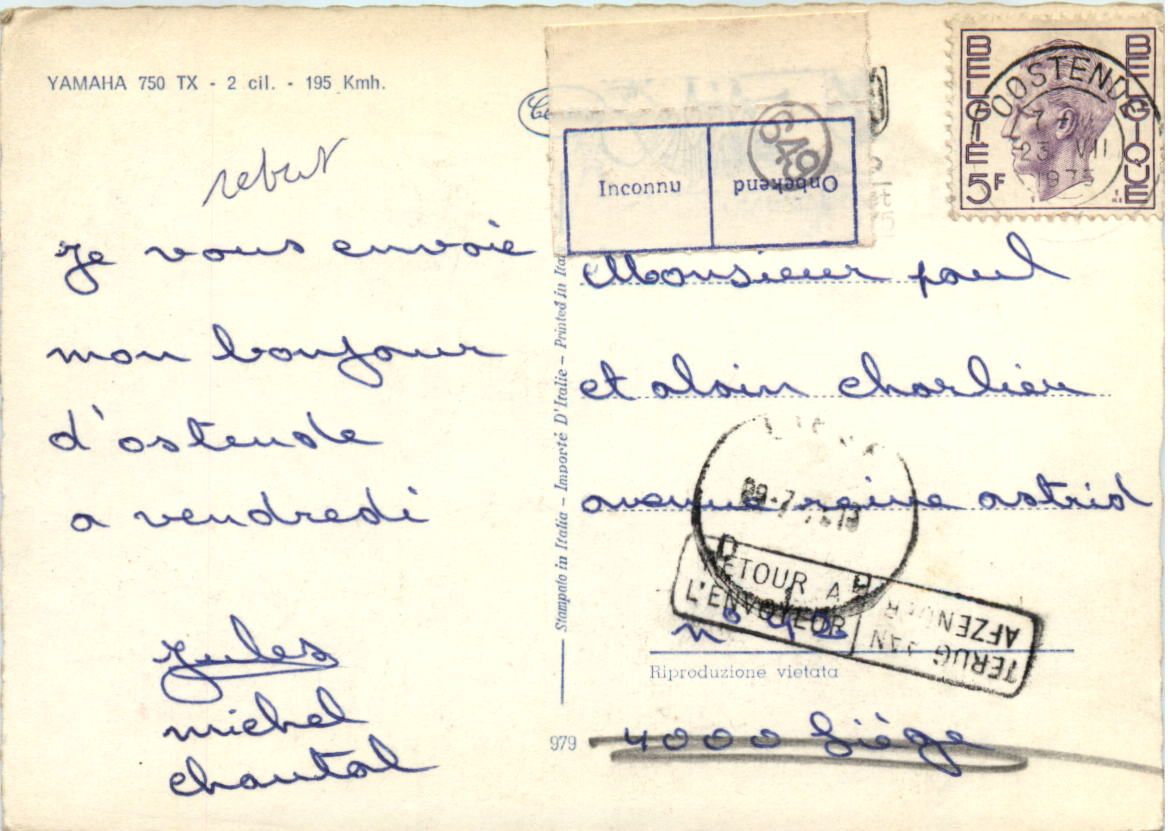 YAMAHA 750 TX - 2 cil. - 195 Kmh.
rebut
je vous envoie
mon bonjour
d'ostende
a vendredi
Jules
michel
chantal
Inconnu
Onbekend
649
BELGIE
BELGIQUE
5F
OOSTENDE
23 VII
1975
Monsieur paul
et alain charlier
avenue reine astrid
n°
4000 Liège
RETOUR A
L'ENVOYEUR
TERUG AAN
AFZENDER
Riproduzione vietata
Stampato in Italia - Importé D'Italie - Printed in Ita
979